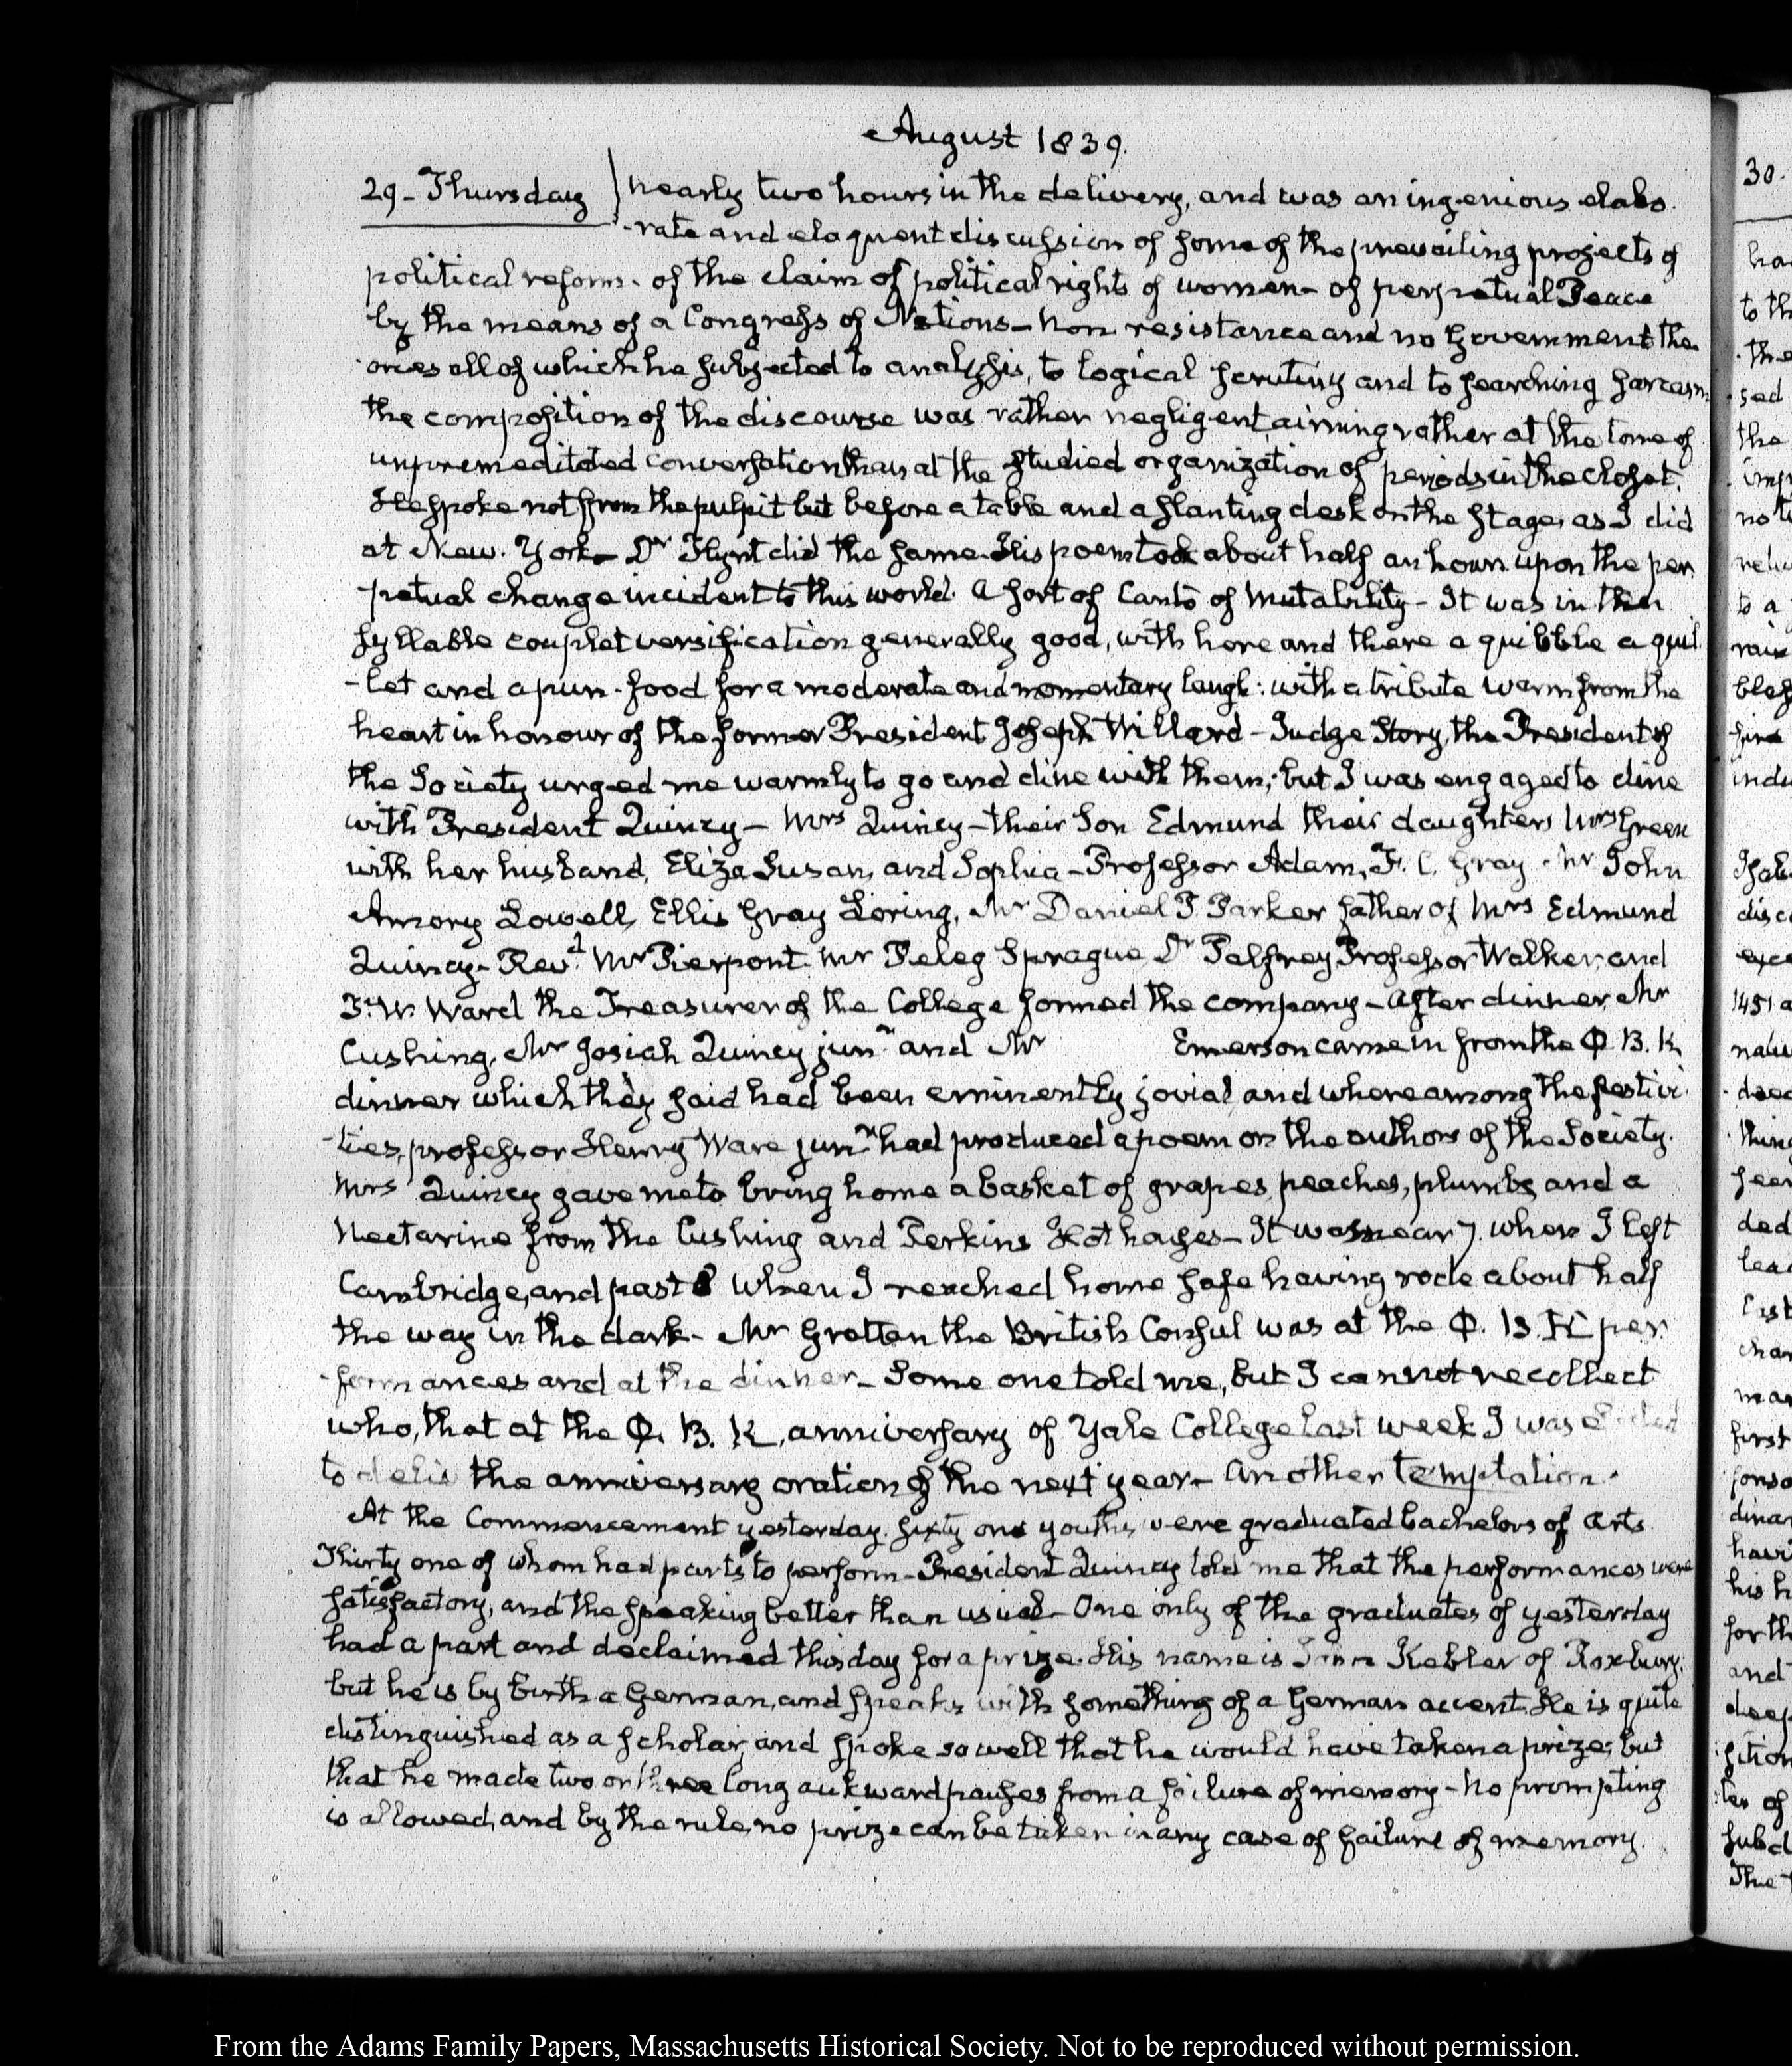 August 1839.
29 - Thursday
nearly two hours in the delivery, and was an ingenious elabo
-rate and eloquent discussion of some of the prevailing projects of
political reform. of the claim of political rights of women - of perpetual Peace
by the means of a Congress of Nations - non resistance and no Government the
-ories all of which he subjected to analysis, to logical scrutiny and to searching sarcasm
the composition of the discourse was rather negligent, aiming rather at the tone of
unpremeditated conversation than at the studied organization of periods in the closet.
He spoke not from the pulpit but before a table and a slanting desk on the stage, as I did
at New-York - Dr Flynt did the same. His poem took about half an hour upon the per
-petual change incident to this world. A sort of Canto of Mutability - It was in then
syllable couplet versification generally good, with here and there a quibble a quil
-let and a pun - food for a moderate and momentary laugh: with a tribute warm from the
heart in honour of the former President Joseph Willard - Judge Story, the President of
the Society urged me warmly to go and dine with them; but I was engaged to dine
with President Quincy - Mrs Quincy - their Son Edmund their daughters Mrs Green
with her husband, Eliza Susan, and Sophia - Professor Adam, F. C. Gray - Mr John
Amory Lowell, Ellis Gray Loring, Mr Daniel P. Parker father of Mrs Edmund
Quincy - Revd Mr Pierpont. Mr Peleg Sprague, Dr Palfrey Professor Walker, and
T. W. Ward the Treasurer of the College formed the company - After dinner, Mr
Cushing, Mr Josiah Quincy junr and Mr Emerson came in from the Φ. B. K.
dinner which they said had been eminently jovial and where among the festivi
-ties, professor Henry Ware junr had produced a poem on the authors of the Society.
Mrs Quincy gave me to bring home a basket of grapes, peaches, plumbs and a
Nectarine from the Cushing and Perkins Hot houses - It was near 7. when I left
Cambridge, and past 8 when I reached home safe having rode about half
the way in the dark - Mr Gratten the British Consul was at the Φ. B. K per
-formances and at the dinner - Some one told me, but I cannot recollect
who, that at the Φ. B. K, anniversary of Yale College last week I was elected
to the anniversary oration of the next year - Another temptation.
At the Commencement yesterday. sixty one youths were graduated bachelors of arts
Thirty one of whom had parts to perform - President Quincy told me that the performances were
satisfactory, and the speaking better than usual - One only of the graduates of yesterday
had a part and declaimed this day for a prize. His name is John Kebler of Roxbury.
but he is by birth a German, and speaks with something of a German accent. He is quite
distinguished as a scholar, and spoke so well that he would have taken a prize; but
that he made two or three long aukward pauses from a failure of memory - No prompting
is allowed, and by the rule, no prize can be taken in any case of failure of memory.
30.
From the Adams Family Papers, Massachusetts Historical Society. Not to be reproduced without permission.